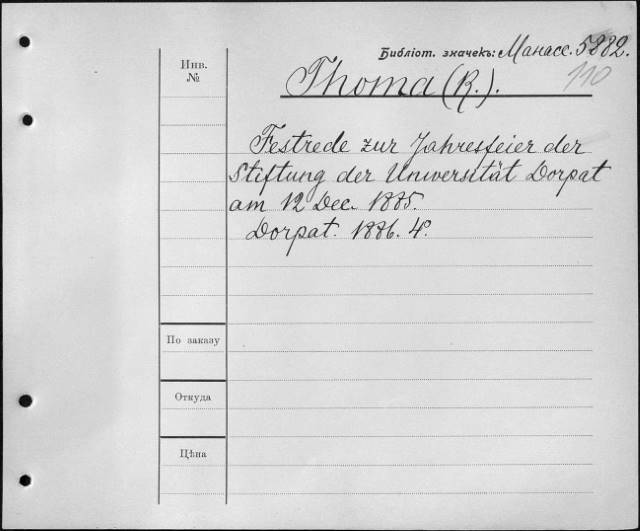 Библіот. значекъ: Манасс. 5882.
110
Инв.
№
Thoma (R.).
Festrede zur Jahresfeier der
Stiftung der Universität Dorpat
am 12 Dec. 1885.
Dorpat. 1886. 4°.
По заказу
Откуда
Цѣна